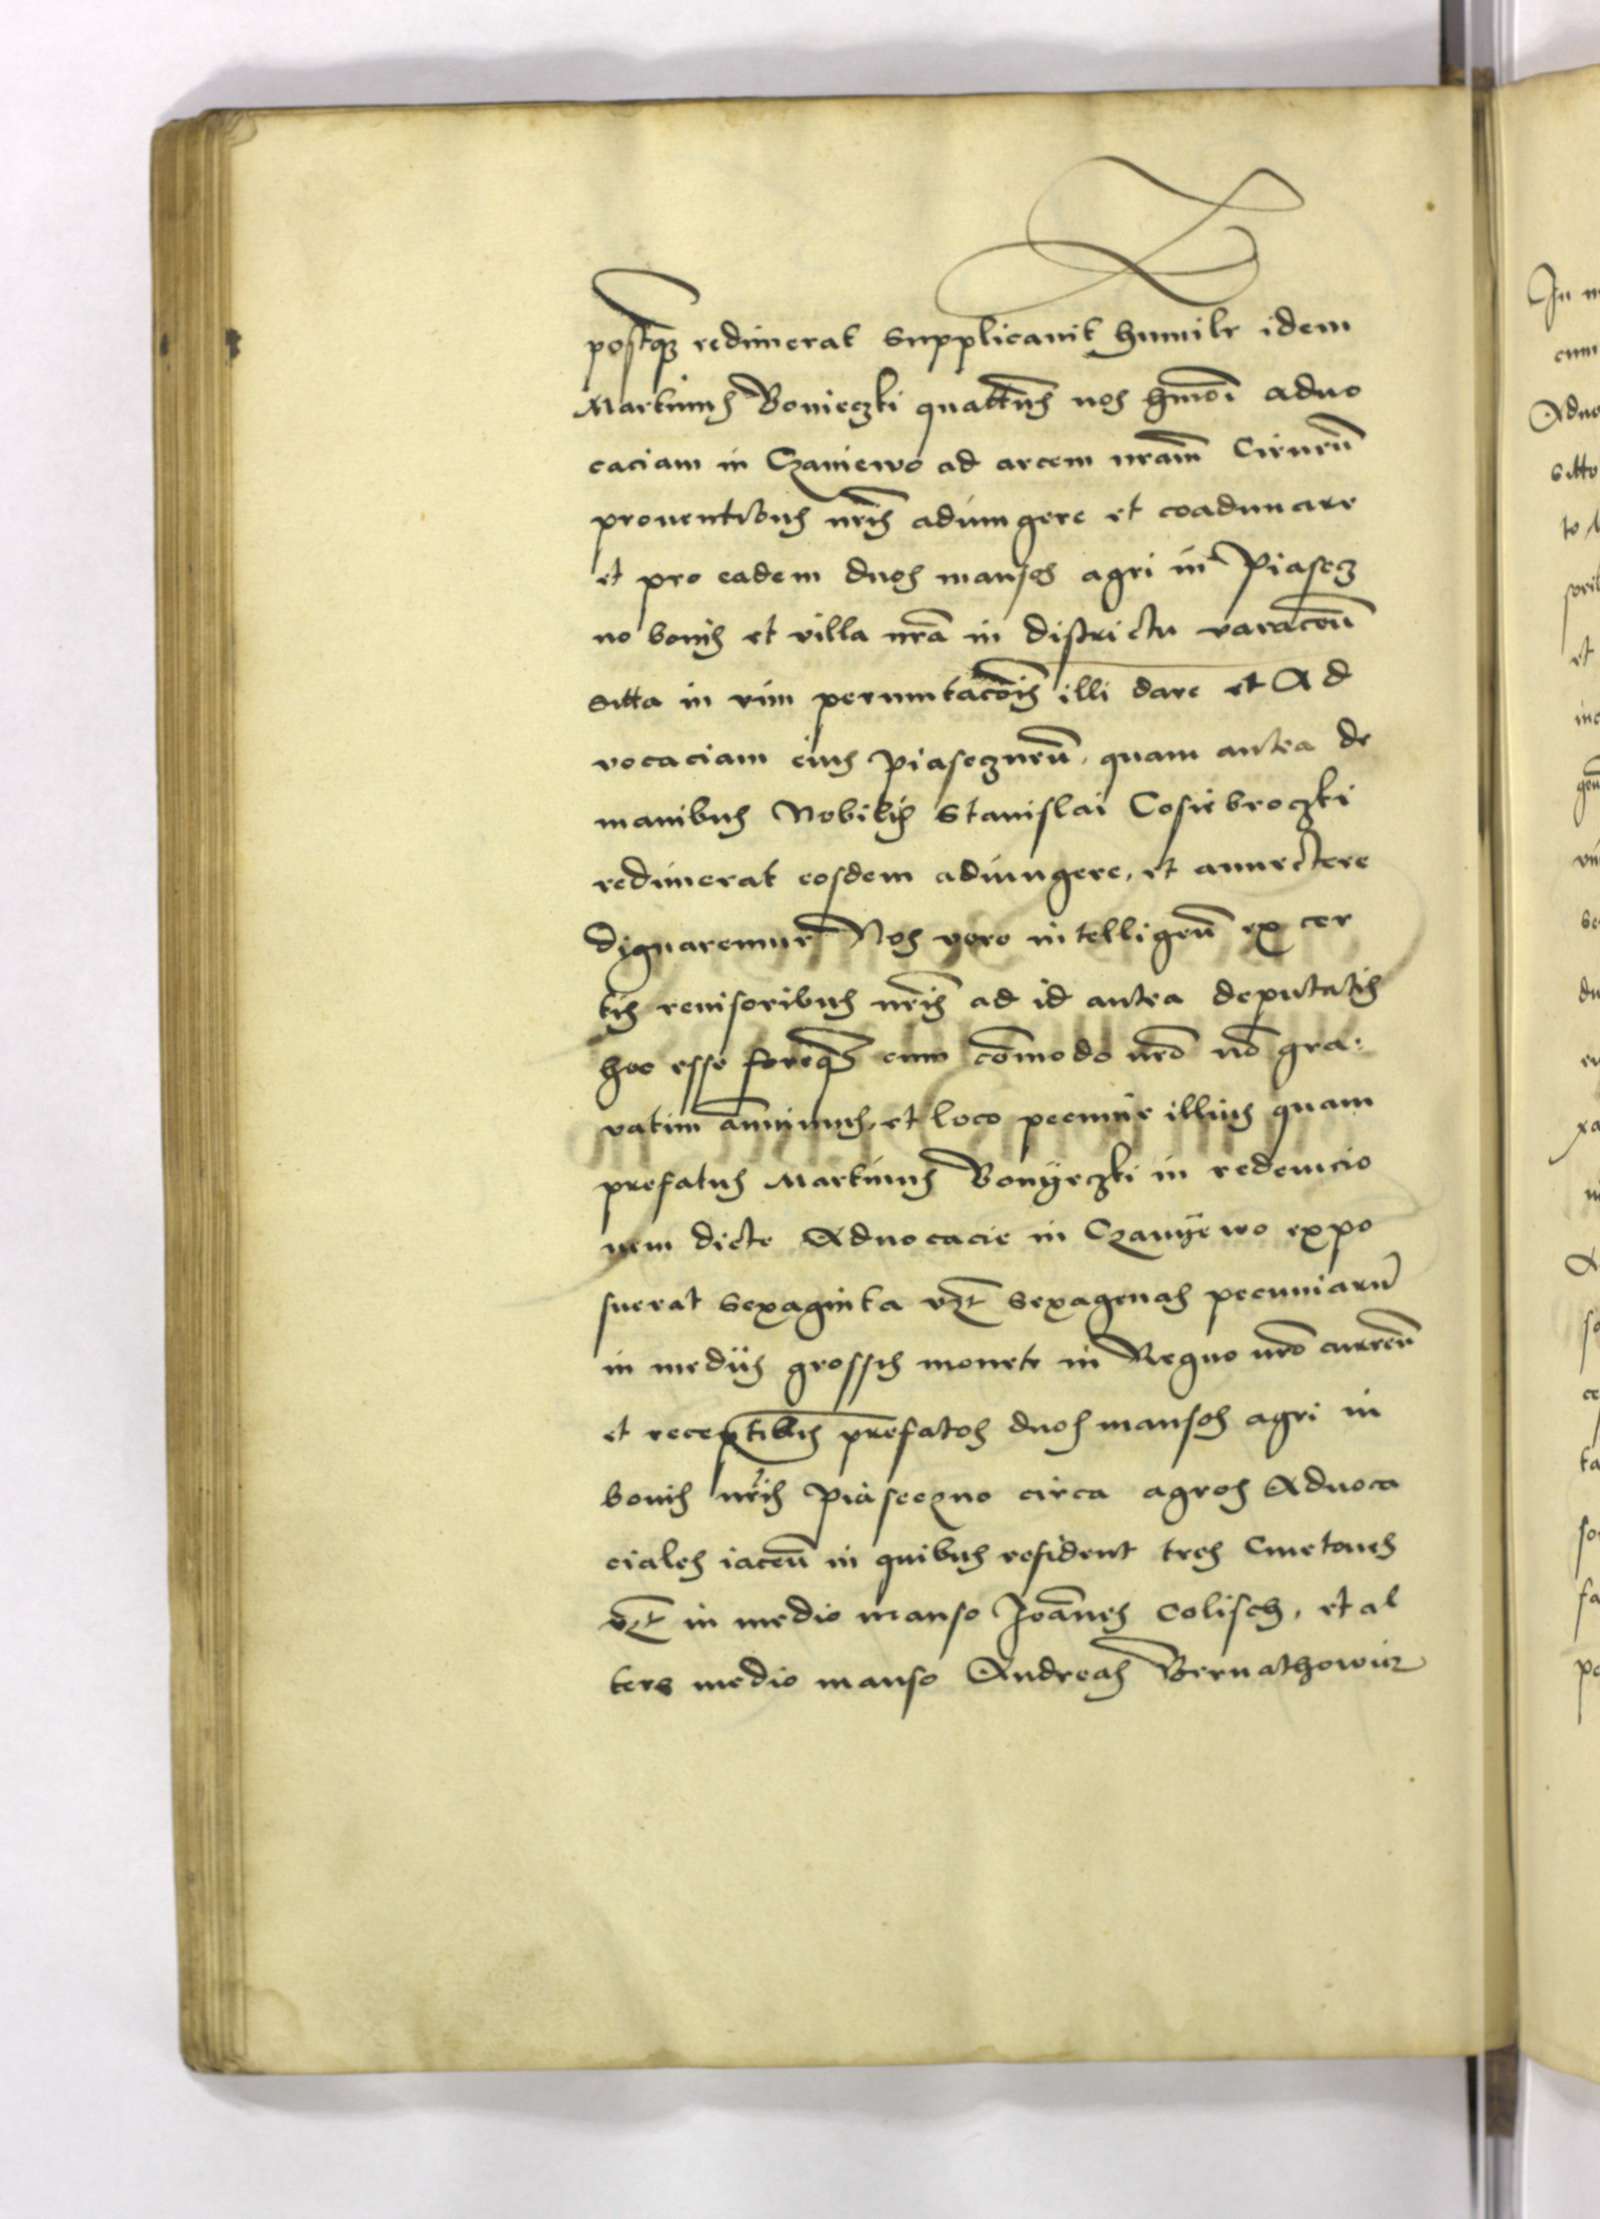 postq̃ redimerat supplicavit humilr idem
Martinus Bonieczki quatt̃us nos hm̃oi aduo
caciam in Czaniewo ad arcem nr̃am Cirnen̄
prouentibus nr̃is adiungere et coadunare
et pro eadem duos mansos agri in Piasecz
no bonis et villa nr̃a in districtu varscen̄
sitta in vim permutacõis illi dare et Ad
vocaciam eius Piasecznen̄, quam antea de
manibus Nobilis Stanislai Cosiebroczki
redimerat eosdem adiungere, et annectere
dignaremur Nos vero intelligen̄ ex cer
tis reuisoribus nr̃is ad id antea deputatis
hoc esse foreq̃ cum cõmodo nr̃o nõ gra:
vatim ãnnuimus, et loco pecunie illius quam
prefatus Martinus Bonyeczki in redemcio
nem dicte Aduocacie in Czanyewo expo
suerat sexaginta vz̃t sexagenas pecuniarũ
in medys grossis monete in Regno nr̃o curren̄
et prefatos duos mansos agri in
bonis nr̃is Piaseczno circa agros Aduoca
ciales iacen̄ in quibus resident tres Cmetones
vz̃t in medio manso Joãnnes Colisch, et al
tero medio manso Andreas Bernathowicz